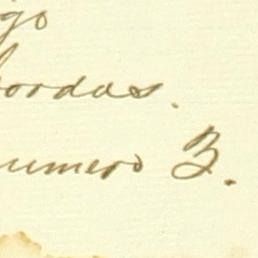 go
ordas.
umero 3.